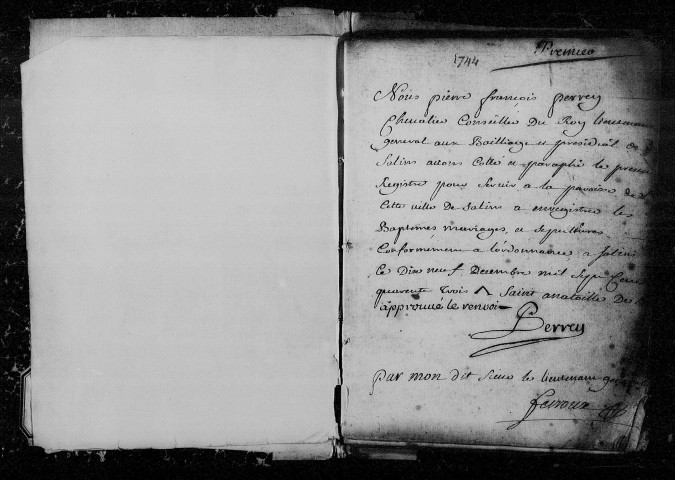 Premier
1744
Nous pierre françois perrey
Chevalier Conseiller Du Roy lieutenant
general aux Bailliage et presidial de
Salins avons Cotté et paraphé le present
Registre pour servir a la paroisse de
Cette ville de Salins a enregistrer les
Baptemes mariages et sepultures
Conformement a l'ordonnance a Salins
le Dix neuf Decembre mil Sept Cent
quarente Trois ^ Saint anatoille De
approuvé le renvoi
Perrey
par mon dit Sieur le lieutenant general